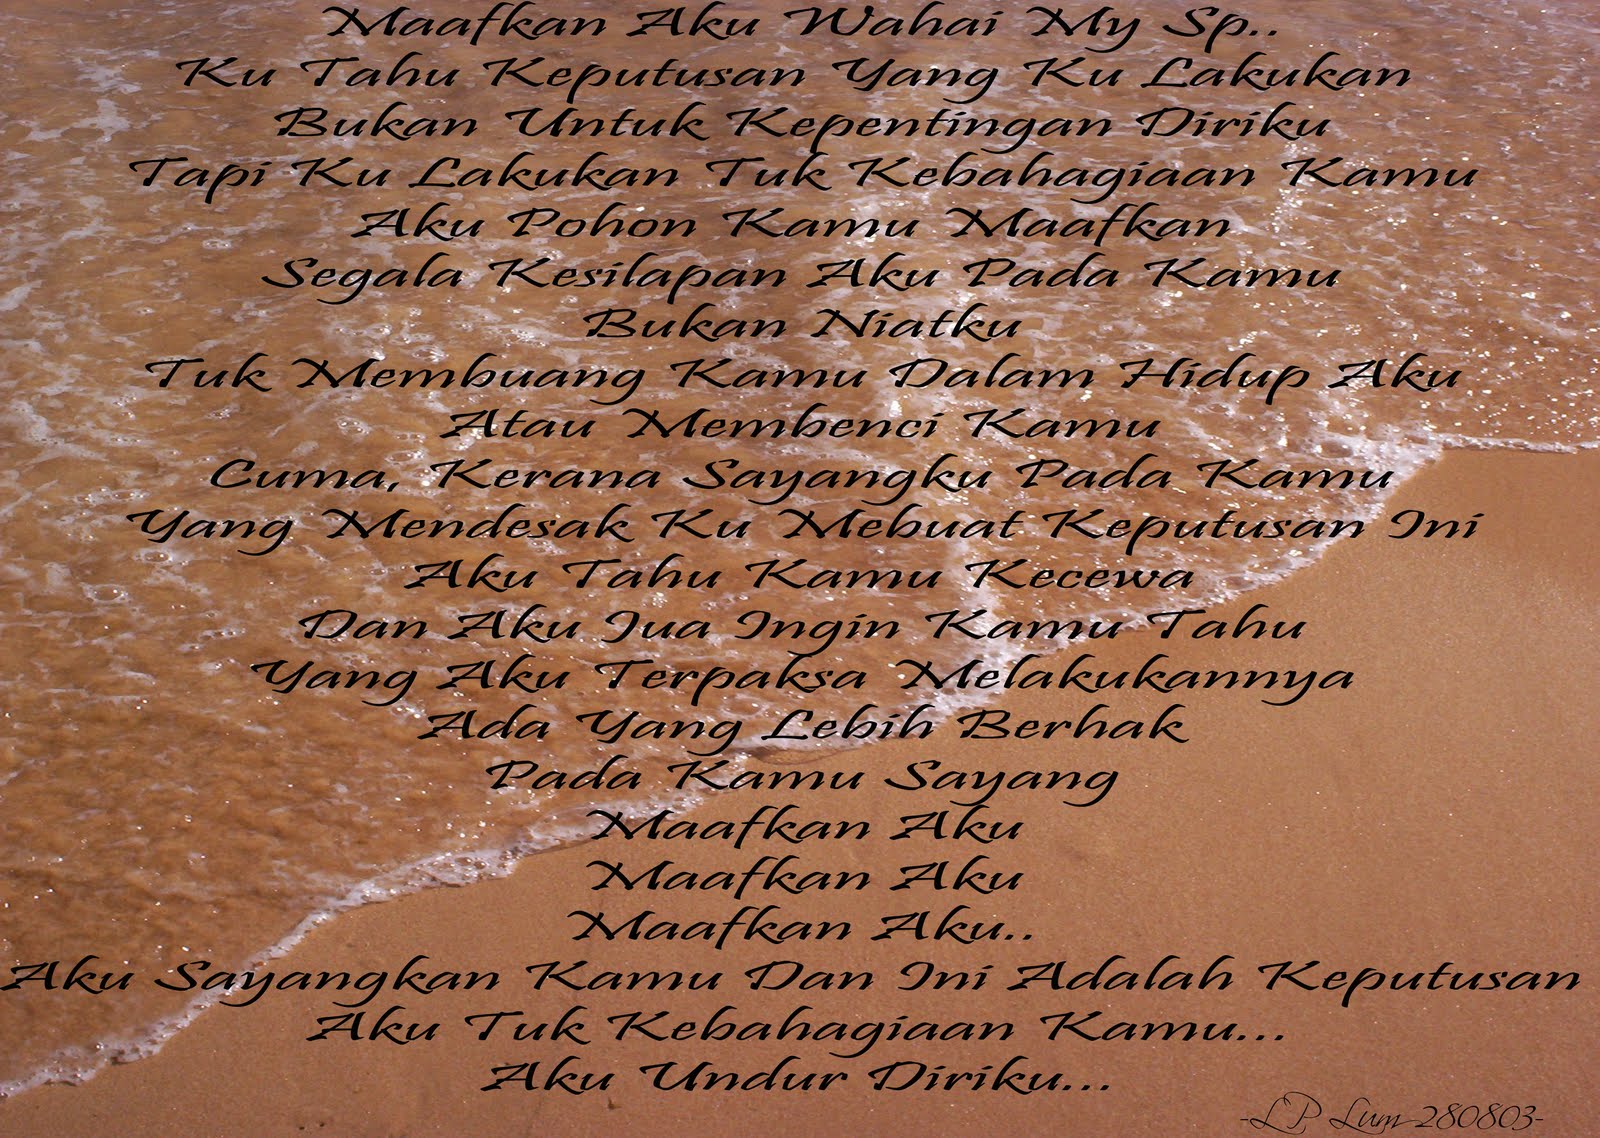 Maafkan Aku Wahai My Sp..
Ku Tahu Keputusan Yang Ku Lakukan
Bukan Untuk Kepentingan Diriku
Tapi Ku Lakukan Tuk Kebahagiaan Kamu
Aku Pohon Kamu Maafkan
Segala Kesilapan Aku Pada Kamu
Bukan Niatku
Tuk Membuang Kamu Dalam Hidup Aku
Atau Membenci Kamu
Cuma, Kerana Sayangku Pada Kamu
Yang Mendesak Ku Mebuat Keputusan Ini
Aku Tahu Kamu Kecewa
Dan Aku Jua Ingin Kamu Tahu
Yang Aku Terpaksa Melakukannya
Ada Yang Lebih Berhak
Pada Kamu Sayang
Maafkan Aku
Maafkan Aku
Maafkan Aku..
Aku Sayangkan Kamu Dan Ini Adalah Keputusan
Aku Tuk Kebahagiaan Kamu...
Aku Undur Diriku...
-LP Lum 280803-